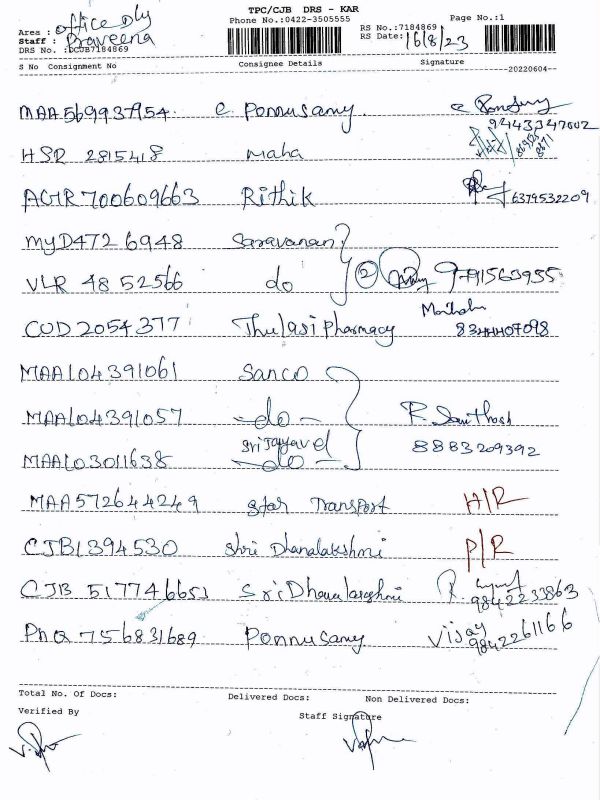 TPC/CJB DRS - KAR
Phone No.:0422-3505555
Page No.:1
Area : office Dly
Staff : Praveena
DRS No. :DCJB7184869
RS No.:7184869
RS Date: 16/8/23
S No Consignment No Consignee Details Signature
20220604
MAA569937954 C. Ponnusamy
HSR 2815418 maha
AGR700609663 Rithik 6379532209
MYD4726948 Saravanan
VLR 4852566 do 2 9791563955
CUD2054377 Thulasi pharmacy
MAA104391061 Sanco
MAA104391057 -do- R. Santhosh
Sri Jayavel 8883209392
MAA103011638 -do-
MAA572644249 Star Transport H/R
CJB1394530 Shri Dhanalakshmi P/R
CJB 517746651 Sri Dhanalakshmi R. 9842233863
PNQ 756831689 Ponnusamy Vijay 9842261166
Total No. Of Docs: Delivered Docs: Non Delivered Docs:
Verified By Staff Signature